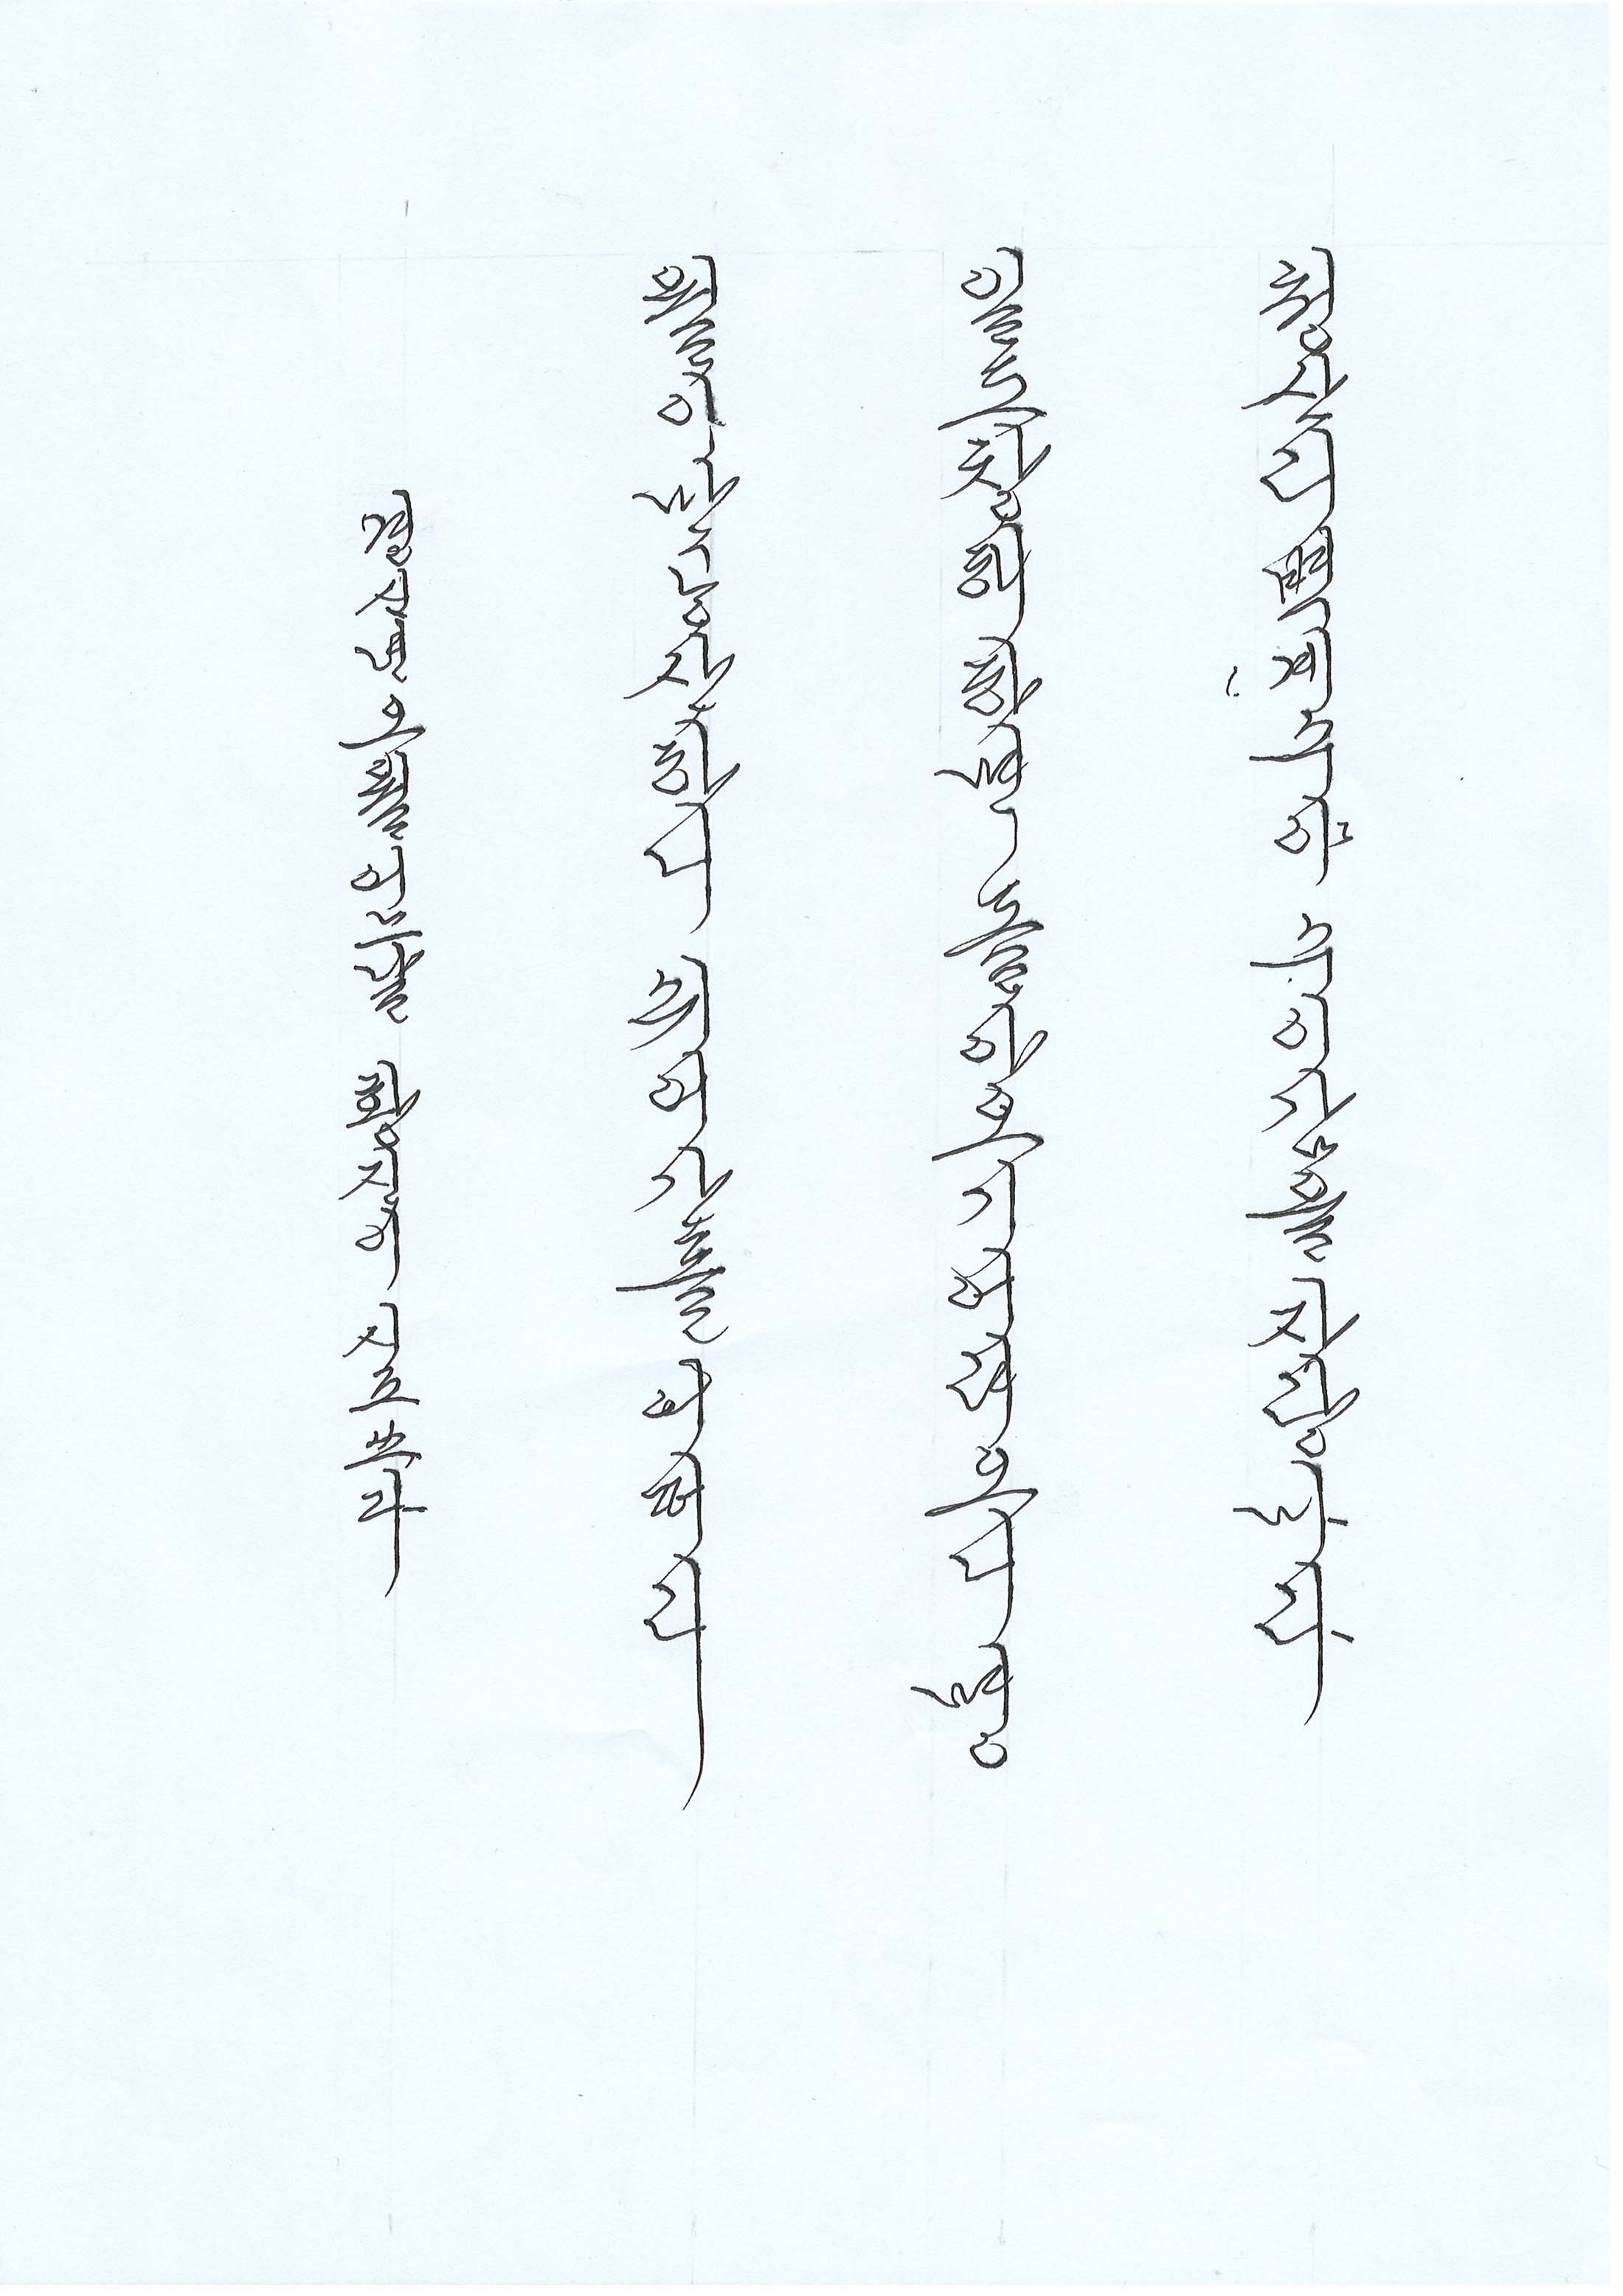 청산리벽계수야 수이감을 자랑마라
일도창해하면 돌아오기어려오니명
월이만공산하니 쉬어간들 어떠리
경신년오월어느날 황진이 시조쓰다